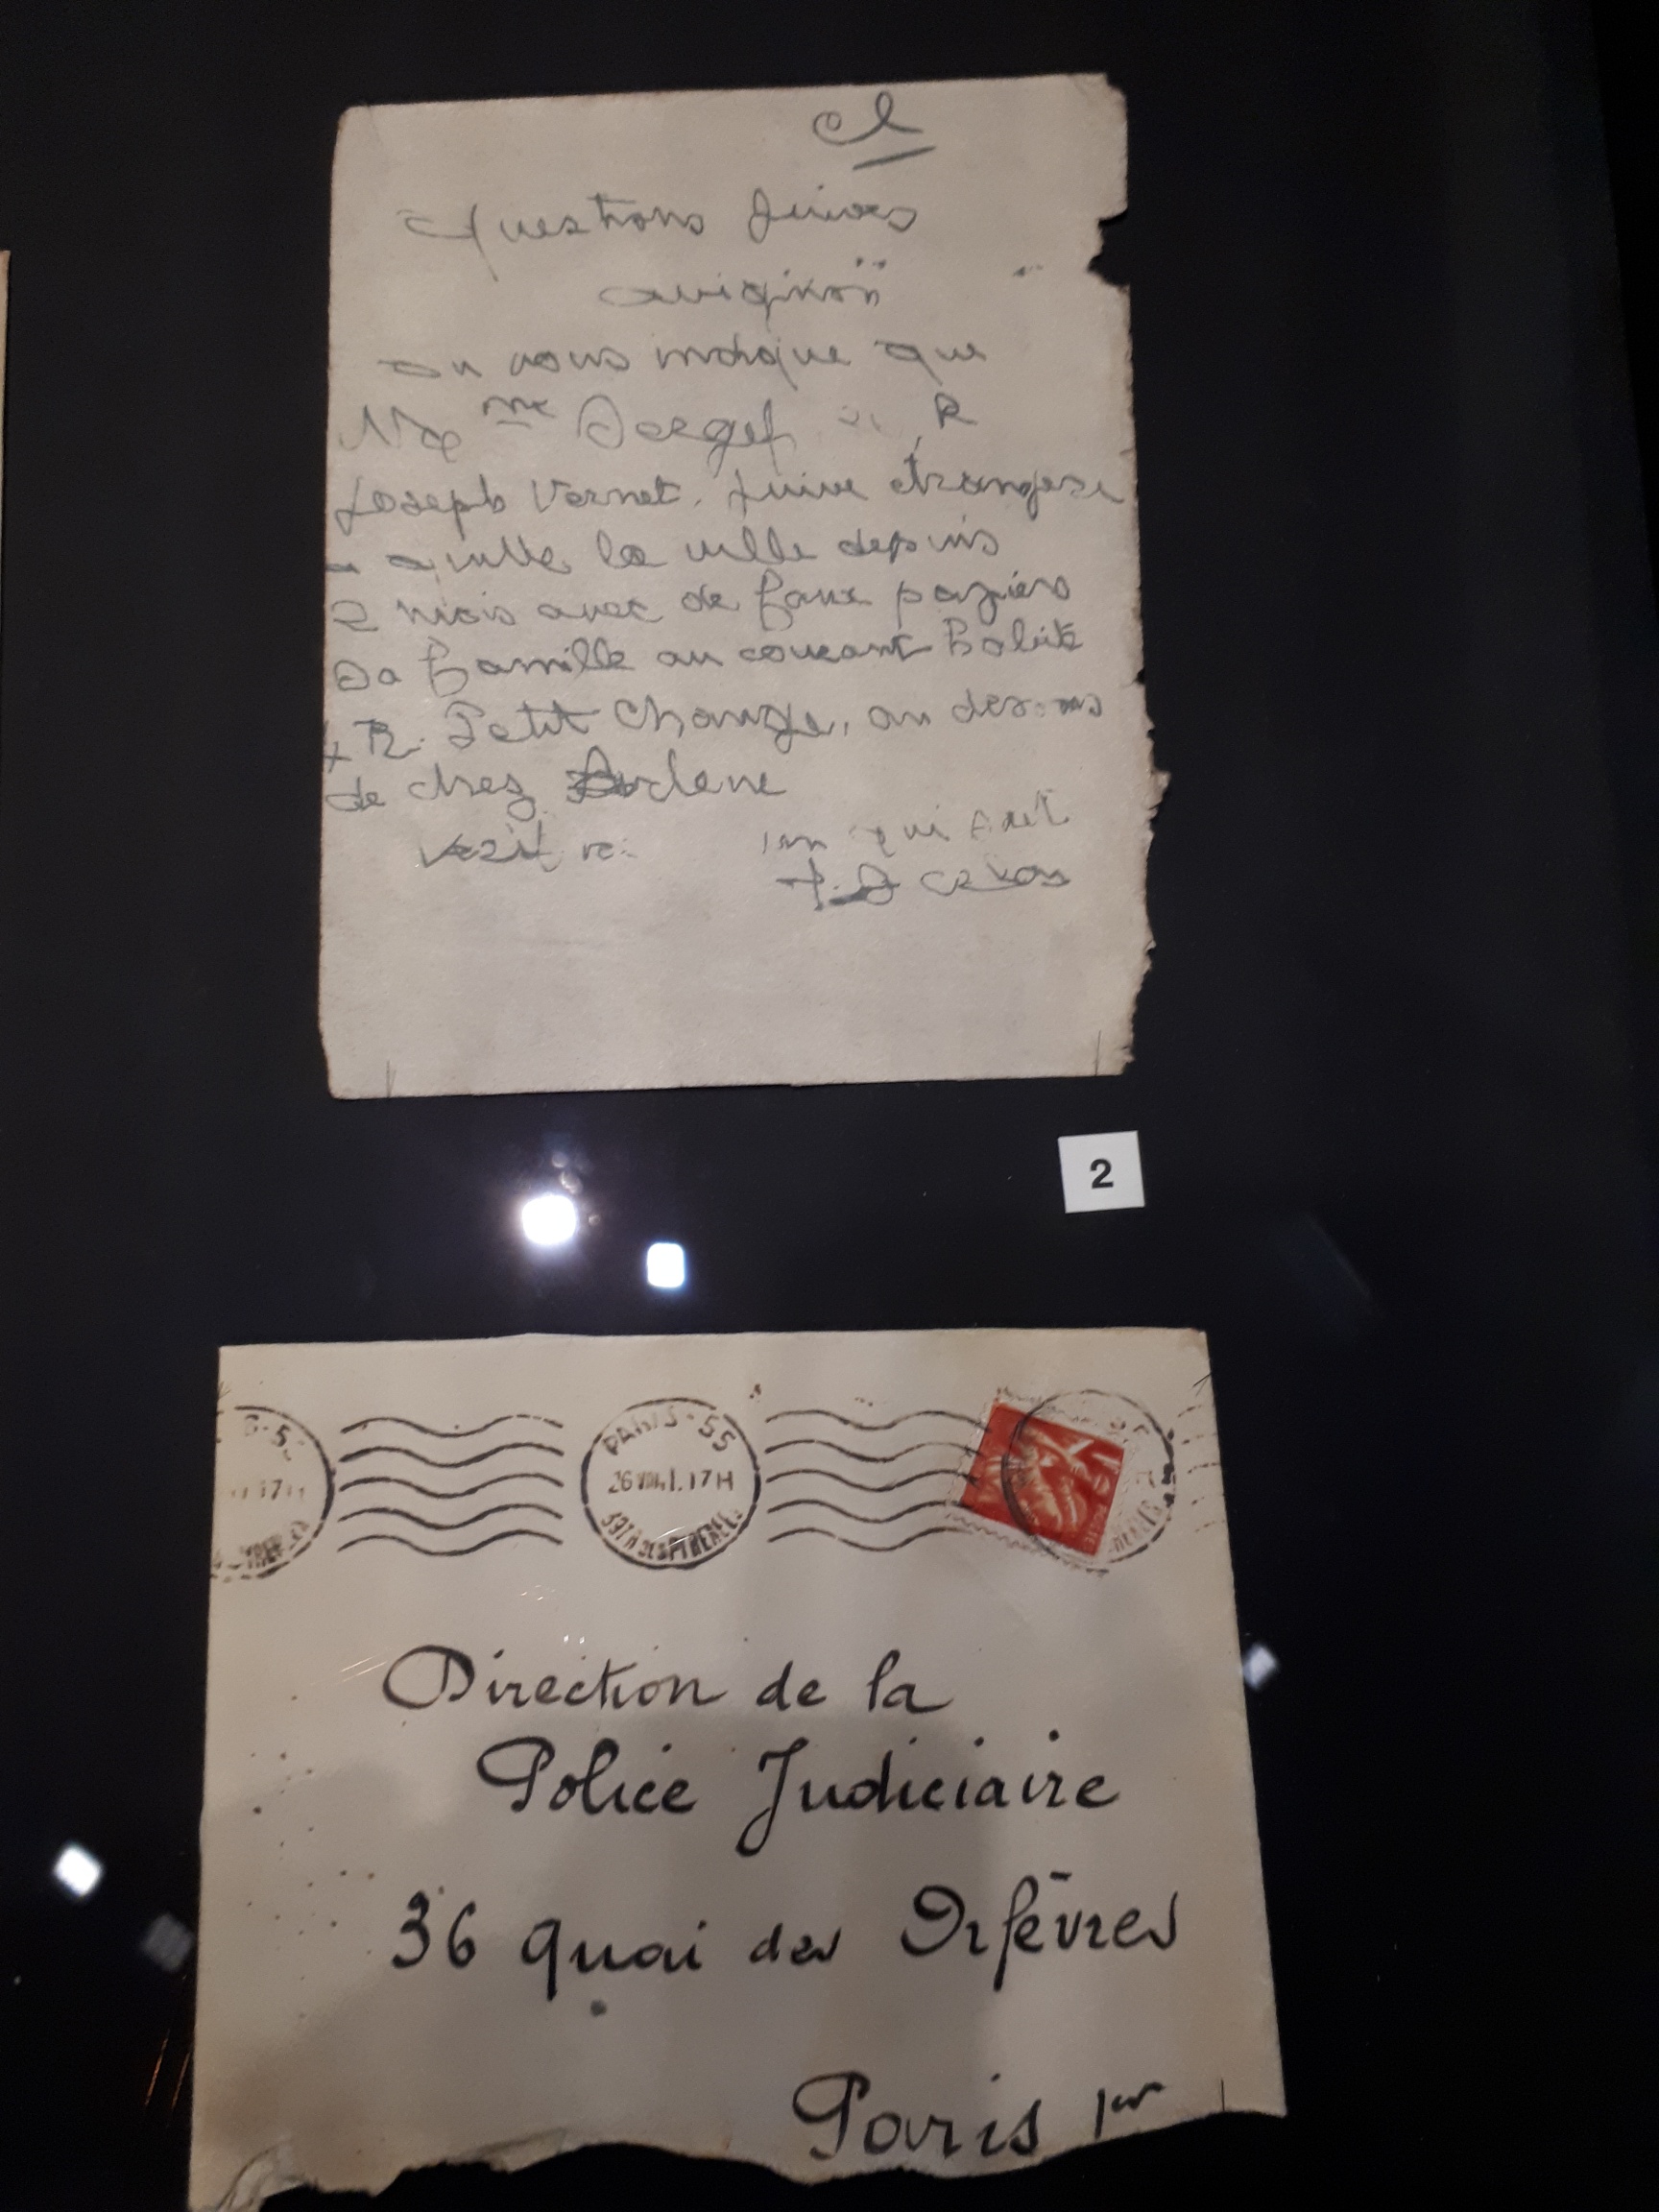 Questions Juives
avignon
on vous indique que
Mme R
Joseph Vernet. Juive etrangere
a quitte la ville depuis
2 mois avec de faux papiers
Sa famille au courant habite
R. Petit Change, au dessus
de chez
un qui sait
2
PARIS-55
26 VIII 41. 17H
Direction de la
Police Judiciaire
36 quai des Orfèvres
Paris 1er